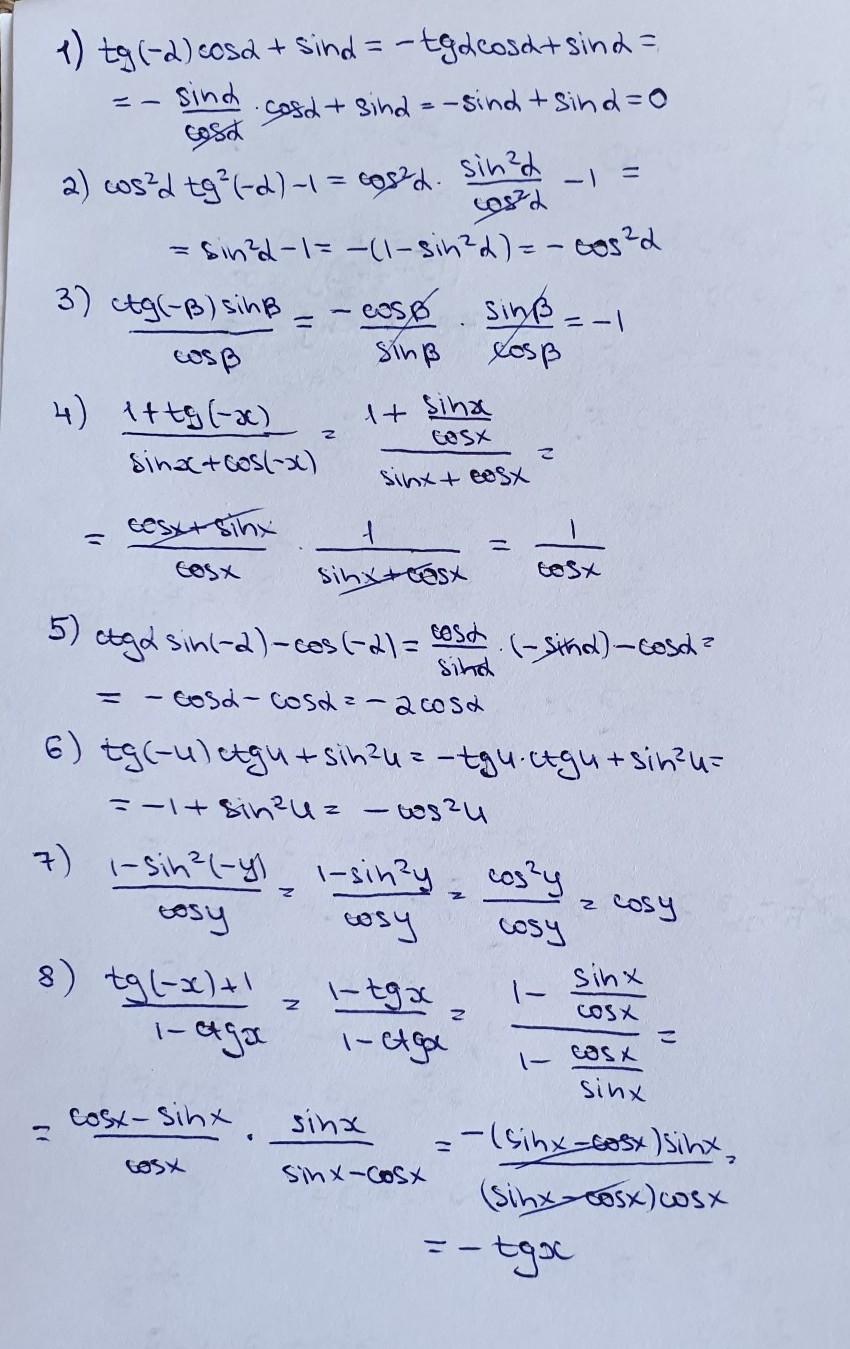 1) tg(-α)cosα + sinα = -tgαcosα + sinα =
= - sinα/cosα · cosα + sinα = -sinα + sinα = 0
2) cos²α tg²(-α) - 1 = cos²α · sin²α/cos²α - 1 =
= sin²α - 1 = -(1 - sin²α) = - cos²α
3) ctg(-β) sinβ/cosβ = - cosβ/sinβ · sinβ/cosβ = -1
4) (1+tg(-x))/(sinx+cos(-x)) = (1 + sinx/cosx)/(sinx + cosx) =
= (cosx + sinx)/cosx · 1/(sinx+cosx) = 1/cosx
5) ctgα sin(-α) - cos(-α) = cosα/sinα · (-sinα) - cosα =
= - cosα - cosα = - 2cosα
6) tg(-u) ctgu + sin²u = -tgu·ctgu + sin²u =
= -1 + sin²u = - cos²u
7) (1-sin²(-y))/cosy = (1-sin²y)/cosy = cos²y/cosy = cosy
8) (tg(-x)+1)/(1-ctgx) = (1-tgx)/(1-ctgx) = (1 - sinx/cosx)/(1 - cosx/sinx) =
= (cosx - sinx)/cosx · sinx/(sinx - cosx) = -(sinx-cosx)sinx/(sinx-cosx)cosx =
= - tgx